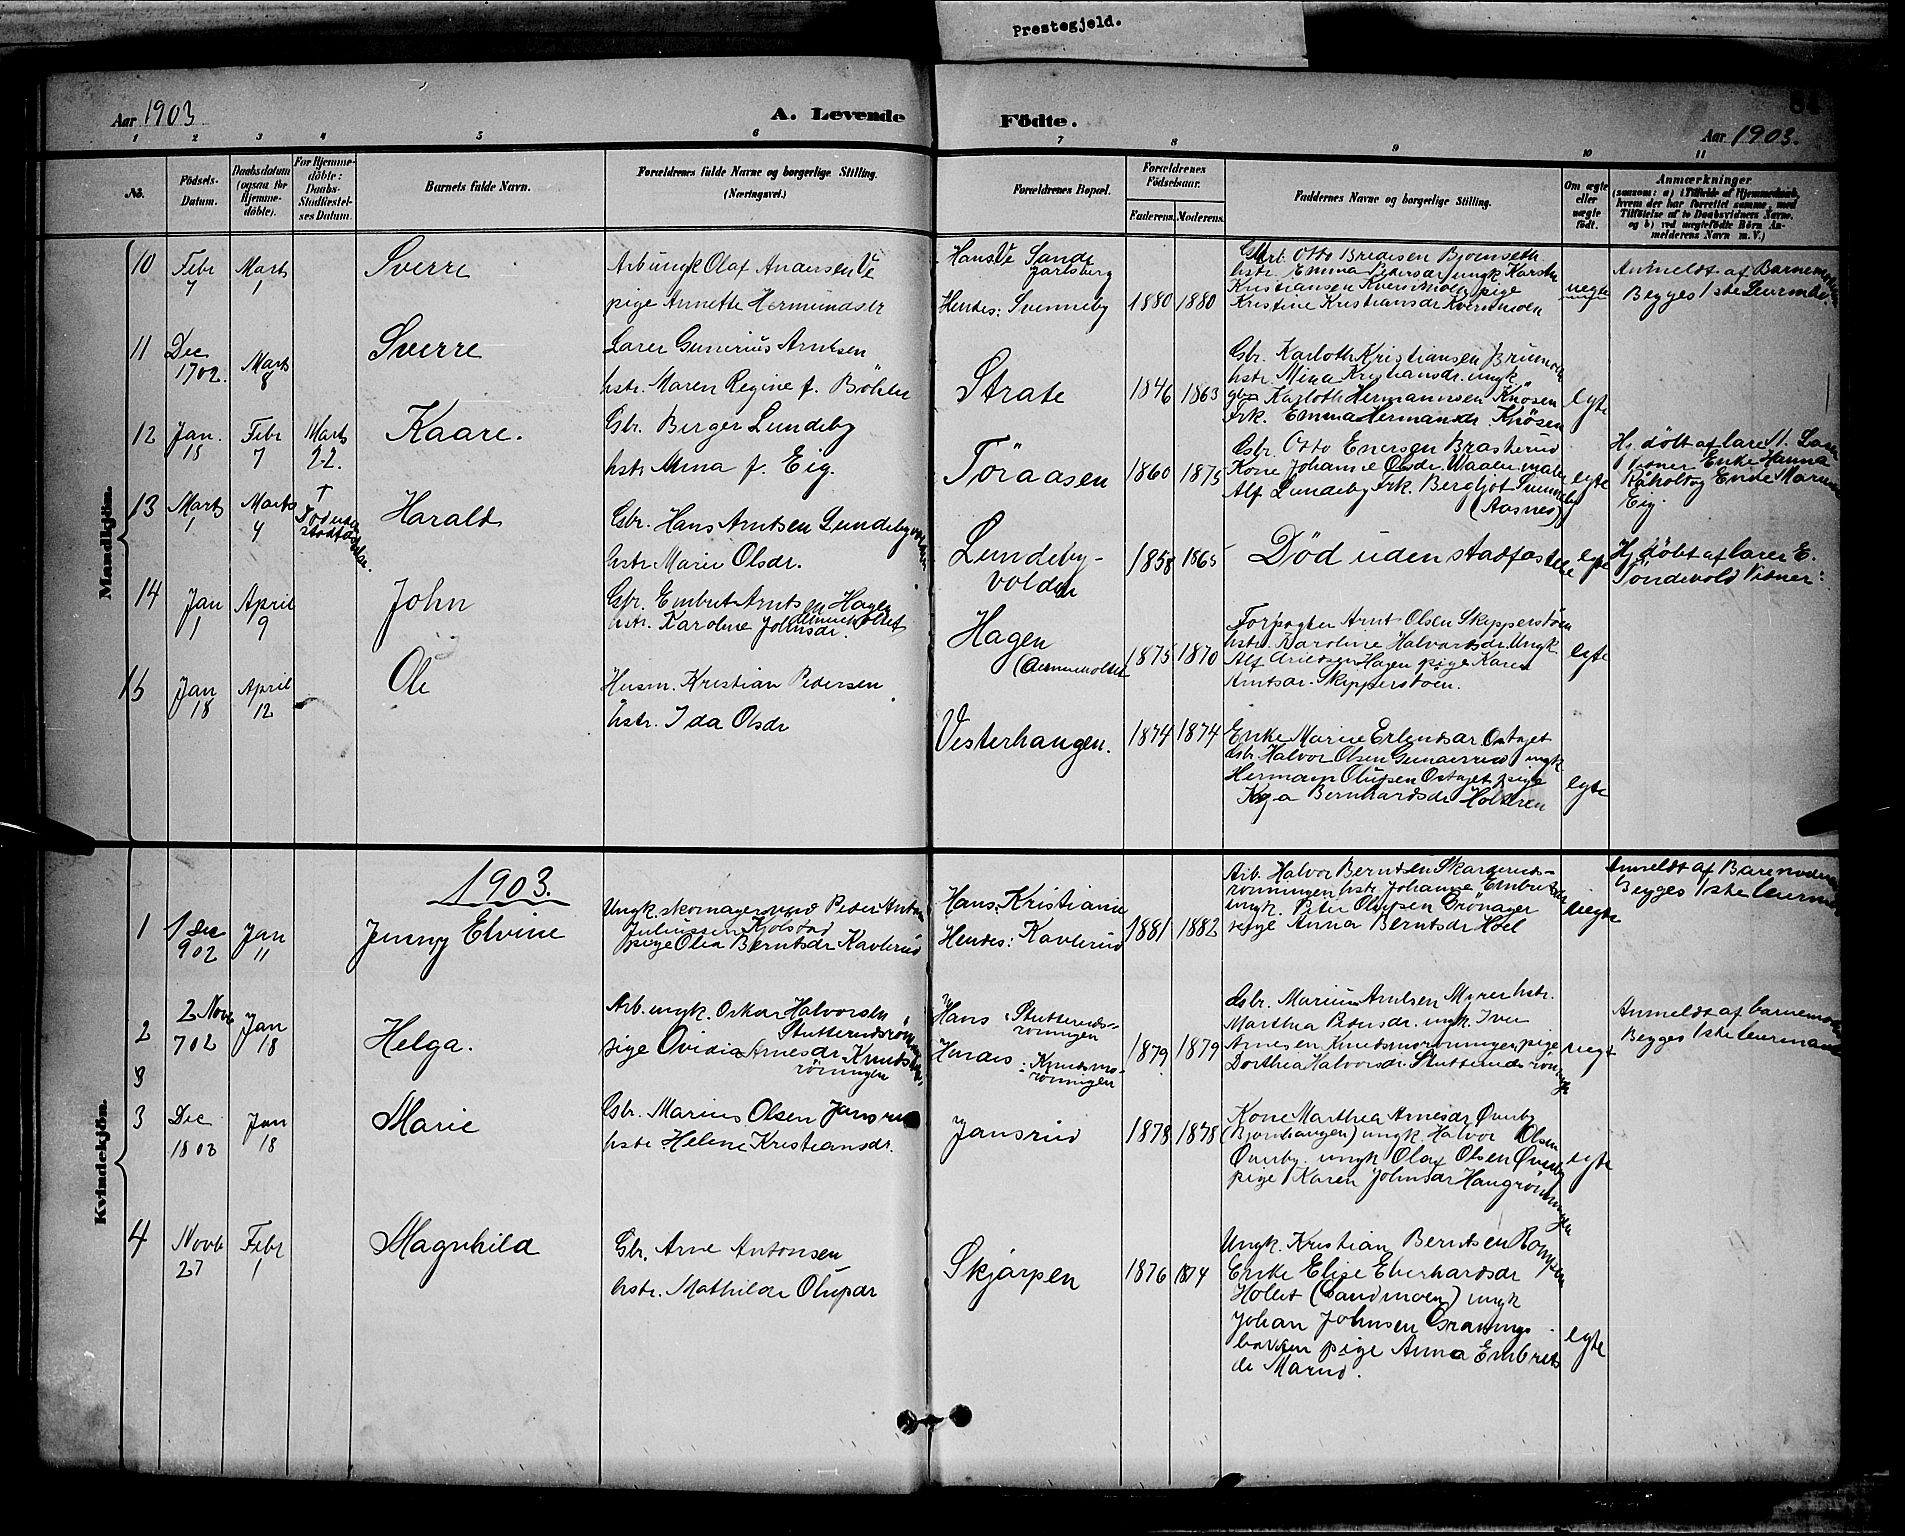 Prestegjeld.
Aar 1903
A. Levende
Födte.
81
Aar 1903.
1 2 3 4 5 6 7 8 9 10 11
No.
Födsels-
Datum.
Daabsdatum
(ogsaa for
Hjemme-
döbte).
For Hjemme-
döbte:
Daabs-
Stadfæstel-
ses Datum.
Barnets fulde Navn.
Forældrenes fulde Navne og borgerlige Stilling.
(Næringsvei.)
Forældrenes Bopæl.
Forældrenes
Födselsaar.
Faderens. Moderens.
Faddernes Navne og borgerlige Stilling.
Om ægte
eller
uægte
födt.
Anmærkninger
(saasom: a) i Tilfælde af Hjemmedaab,
hvem der har forrettet samme, med
Tilföielse af to Daabsvidners Navne.
og b) ved uægtefödte Börn An-
melderens Navn m. V.)
Mandkjön.
10
Febr
7
Marts
1
Sverre
Arb ungk Olaf Andersen Ve
pige Annette Hermundsdr
Hans Ve Sande
Jarlsberg
Hendes: Svenneby
1880 1880
Gbr. Otto Bredesen Bjørnseth
hstr. Emma Pedersdr ungk Karsten
Kristiansen Kvernmoen pige
Kristine Kristiansdr Kvernmoen
uegte
Anmeldt af Barnemoderen
Begges 1ste Leiermaal
11
Dec
17 02.
Marts
8
Sverre
Larer Gunerius Arntsen
hstr. Maren Regine f. Böhler
Strate
1846 1863
Gbr. Karloth Kristiansen
hstr. Mina Kristiansdr. ungk
Karloth Hermannsen Knösen
Frk. Emma Hermansdr Knösen
egte
12
Jan.
15
Febr
7
Marts
22.
Kaare.
Gbr. Berger Lundeby
hstr. Mina f. Eig.
Töraasen
1860 1875
Gbr. Otto Enersen Brasterud
Kone Johanne Olsdr. Waaler maler
Alf Lundeby Frk. Bergljot Svenneby
(Aasnes)
egte
Hj. döbt af larer
Enke Hanna
Raholt og Enke Maren
Eig.
13
Marts
1
Marts
4
†
Död uden
stadfæstelse.
Harald
Gbr. Hans Arntsen Lundebyvolden
hstr Marie Olsdr.
Lundeby-
volden
1858 1865
Död uden stadfæstelse
egte
Hj. döbt af larer E.
Töndevold Vidner:
14
Jan
1
April
9
John
Gbr. Embret Arntsen Hagen
hstr. Karoline Johnsdr.
Hagen
1875 1870
Forpagter Arnt Olsen Skipperstøen
hstr. Karoline Halvorsdr. Ungk.
Alf Arntsen Hagen pige Karen
Arntsdr. Skipperstøen.
egte
15
Jan
18
April
12
Ole
Husm. Kristian Pedersen
hstr. Ida Olsdr
Vesterhaugen.
1874 1874
Enke Marie Erlentsdr
Gbr. Halvor Olsen ungk
Hermann Olufsen pige
Kaja Bernhardsdr
egte
Kvindekjön.
1903.
1
1 Dec
902
Jan
11
Jenny Elvine
Ungk. skomagersvend Peder Anton
Juliussen Kjölstad
pige Olea Berntsdr Kavlerud
Hans: Kristiania
Hendes: Kavlerud
1881 1882
Arb. Halvor Berntsen Skarderuds-
rønningen hstr. Johanne Embretsdr
ungk. Peter Olufsen Grönager
pige Anna Berntsdr Hoel
uegte
Anmeldt af Barnemoderen
Begges 1ste leiermaal
2
2 Nov
702
Jan
18
Helga.
Arb. ungk. Oskar Halvorsen
Stutterudsrønningen
pige Ovidia Arnesdr. Knudsmo-
rönningen
Hans: Stutteruds-
rønningen
Hendes: Knudsmo-
rønningen
1879 1879
Gbr. Marius Arntsen Myrer hstr.
Marthea Pedersdr. ungk. Iver
Arnesen Knudsmorønningen pige
Dorthea Halvorsdr. Stutterudsrønningen
uegt
Anmeldt af barnemoderen
Begges 1ste leiermaal
3
3
Dec
18 03
Jan
18
Marie
Gbr. Marius Olsen Jansrud
hstr Helene Kristiansdr.
Jansrud
1878 1878
Kone Marthea Arnesdr Överby
(Bjørnhaugen) ungk. Halvor Olsen
Överby ungk Olaf Olsen Överby
pige Karen Johnsdr Haugrønningen
egte
4
Novb
27
Febr
1
Magnhild
Gbr. Arne Antonsen
hstr. Mathilde Olufsdr
Skjarpen
1876 1874
Ungk. Kristian Berntsen
Enke Elise Eberhardsdr
Holet (Sandmoen) ungk
Johan Johnsen
pige Anna Embrets
dr Marud.
egte